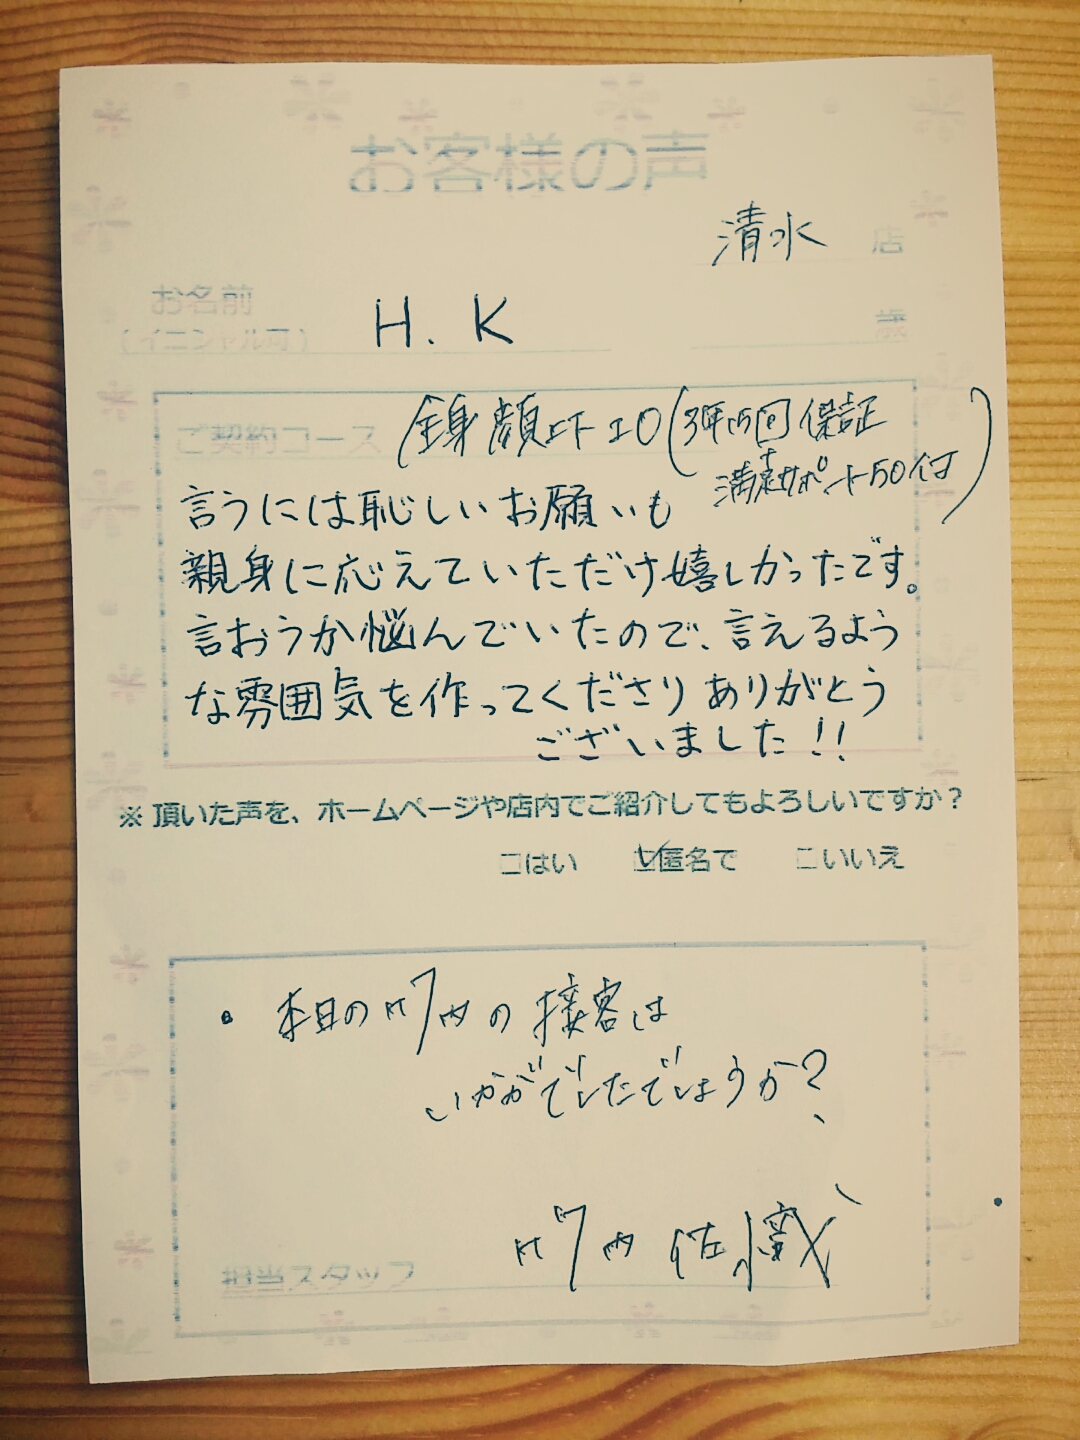 お客様の声
清水 店
お名前
(イニシャル可) H. K 歳
ご契約コース 全身顔 (3年15回保証
満足サポート50付)
言うには恥しいお願いも
親身に応えていただけ嬉しかったです。
言おうか悩んでいたので、言えるよう
な雰囲気を作ってくださりありがとう
ございました!!
※頂いた声を、ホームページや店内でご紹介してもよろしいですか?
□はい ☑匿名で □いいえ
・本日の の接客は
いかがでしたでしょうか?
担当スタッフ